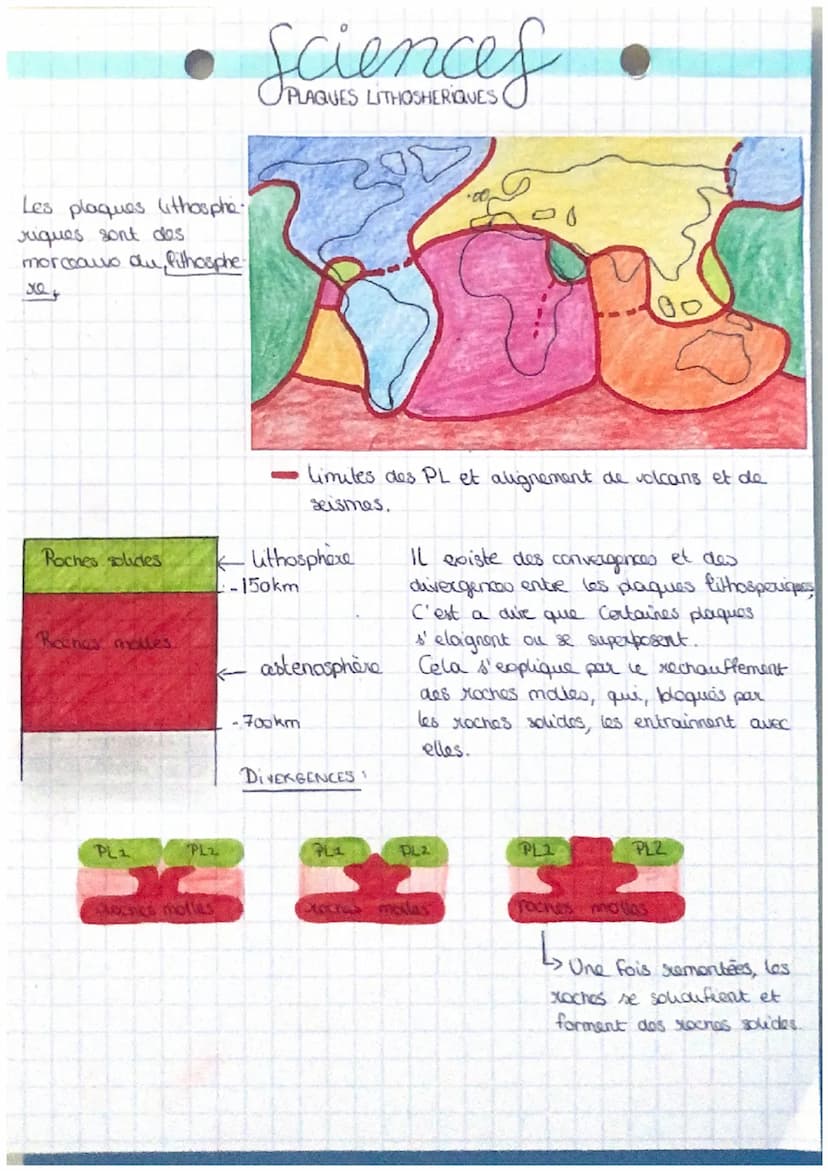 Sciences
PLAQUES LITHOSHERIQUES
Les plaques lithosphé-
riques sont des
morceaux du lithosphè-
re.
Limites des PL et alignement de volcans et de
seismes.
Roches solides
lithosphère
-150km
Roches molles
astenosphère
-700km
Il existe des convergences et des
divergences entre les plaques lithosperiques,
C'est a dire que certaines plaques
s'elaignent ou se superposent.
Cela s'explique par le rechauffement
des roches molles, qui, bloqués par
les roches solides, les entrainnent avec
elles.
DIVERGENCES :
PL1 PL2
roches molles
PL1 PL2
roches molles
PL1 PL2
roches molles
Une fois remontées, les
roches se solidifient et
forment des roches solides.